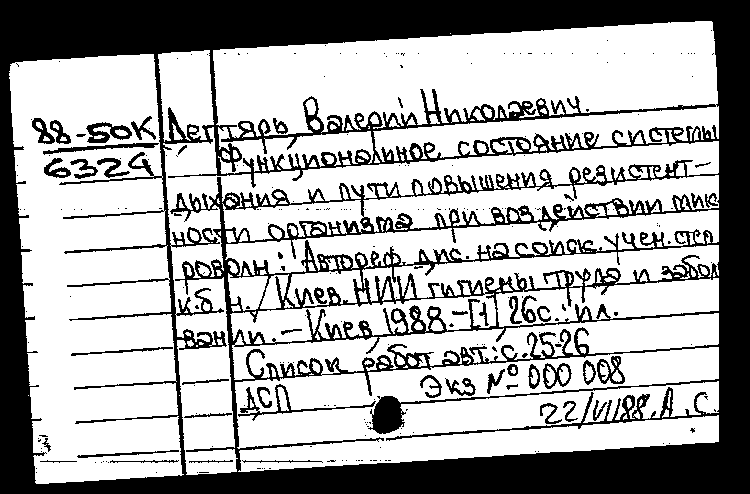 88-50К Дегтярь, Валерий Николаевич.
6324 Функциональное состояние системы
дыхания и пути повышения резистент-
ности организма при воздействии мик
роволн: Автореф. дис. на соиск. учен. степ
к.б.н. / Киев. НИИ гигиены труда и забол
ваний. – Киев, 1988. – [1] 26с.: ил.
Список работ авт.: с. 25-26
ДСП Экз № 000 008
22/VI88. А. С
3